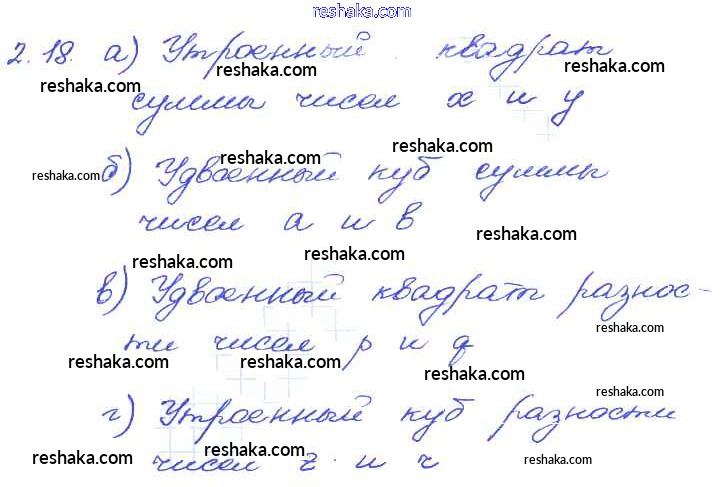 reshaka.com
2.18. а) Утроенный квадрат
reshaka.com reshaka.com reshaka.com
суммы чисел x и y
reshaka.com reshaka.com
reshaka.com б) Удвоенный куб суммы
чисел a и b
reshaka.com
reshaka.com reshaka.com
в) Удвоенный квадрат разнос-
reshaka.com
ти чисел p и q
reshaka.com reshaka.com reshaka.com
г) Утроенный куб разности
reshaka.com
чисел z и r
reshaka.com reshaka.com reshaka.com